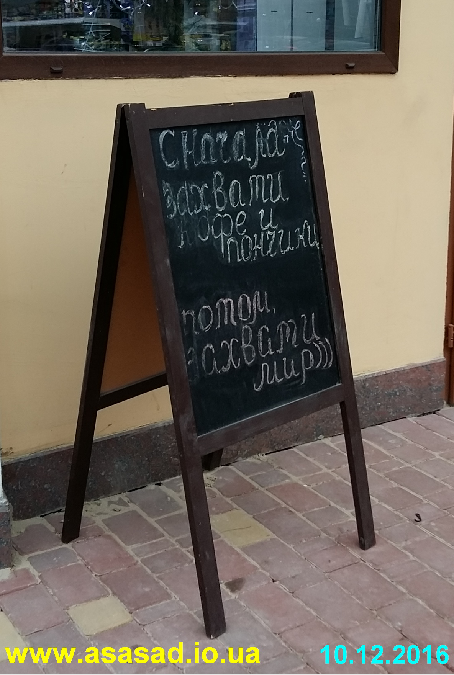 сначала
захвати
кофе и
пончики
потом
захвати
мир)))
www.asasad.io.ua
10.12.2016